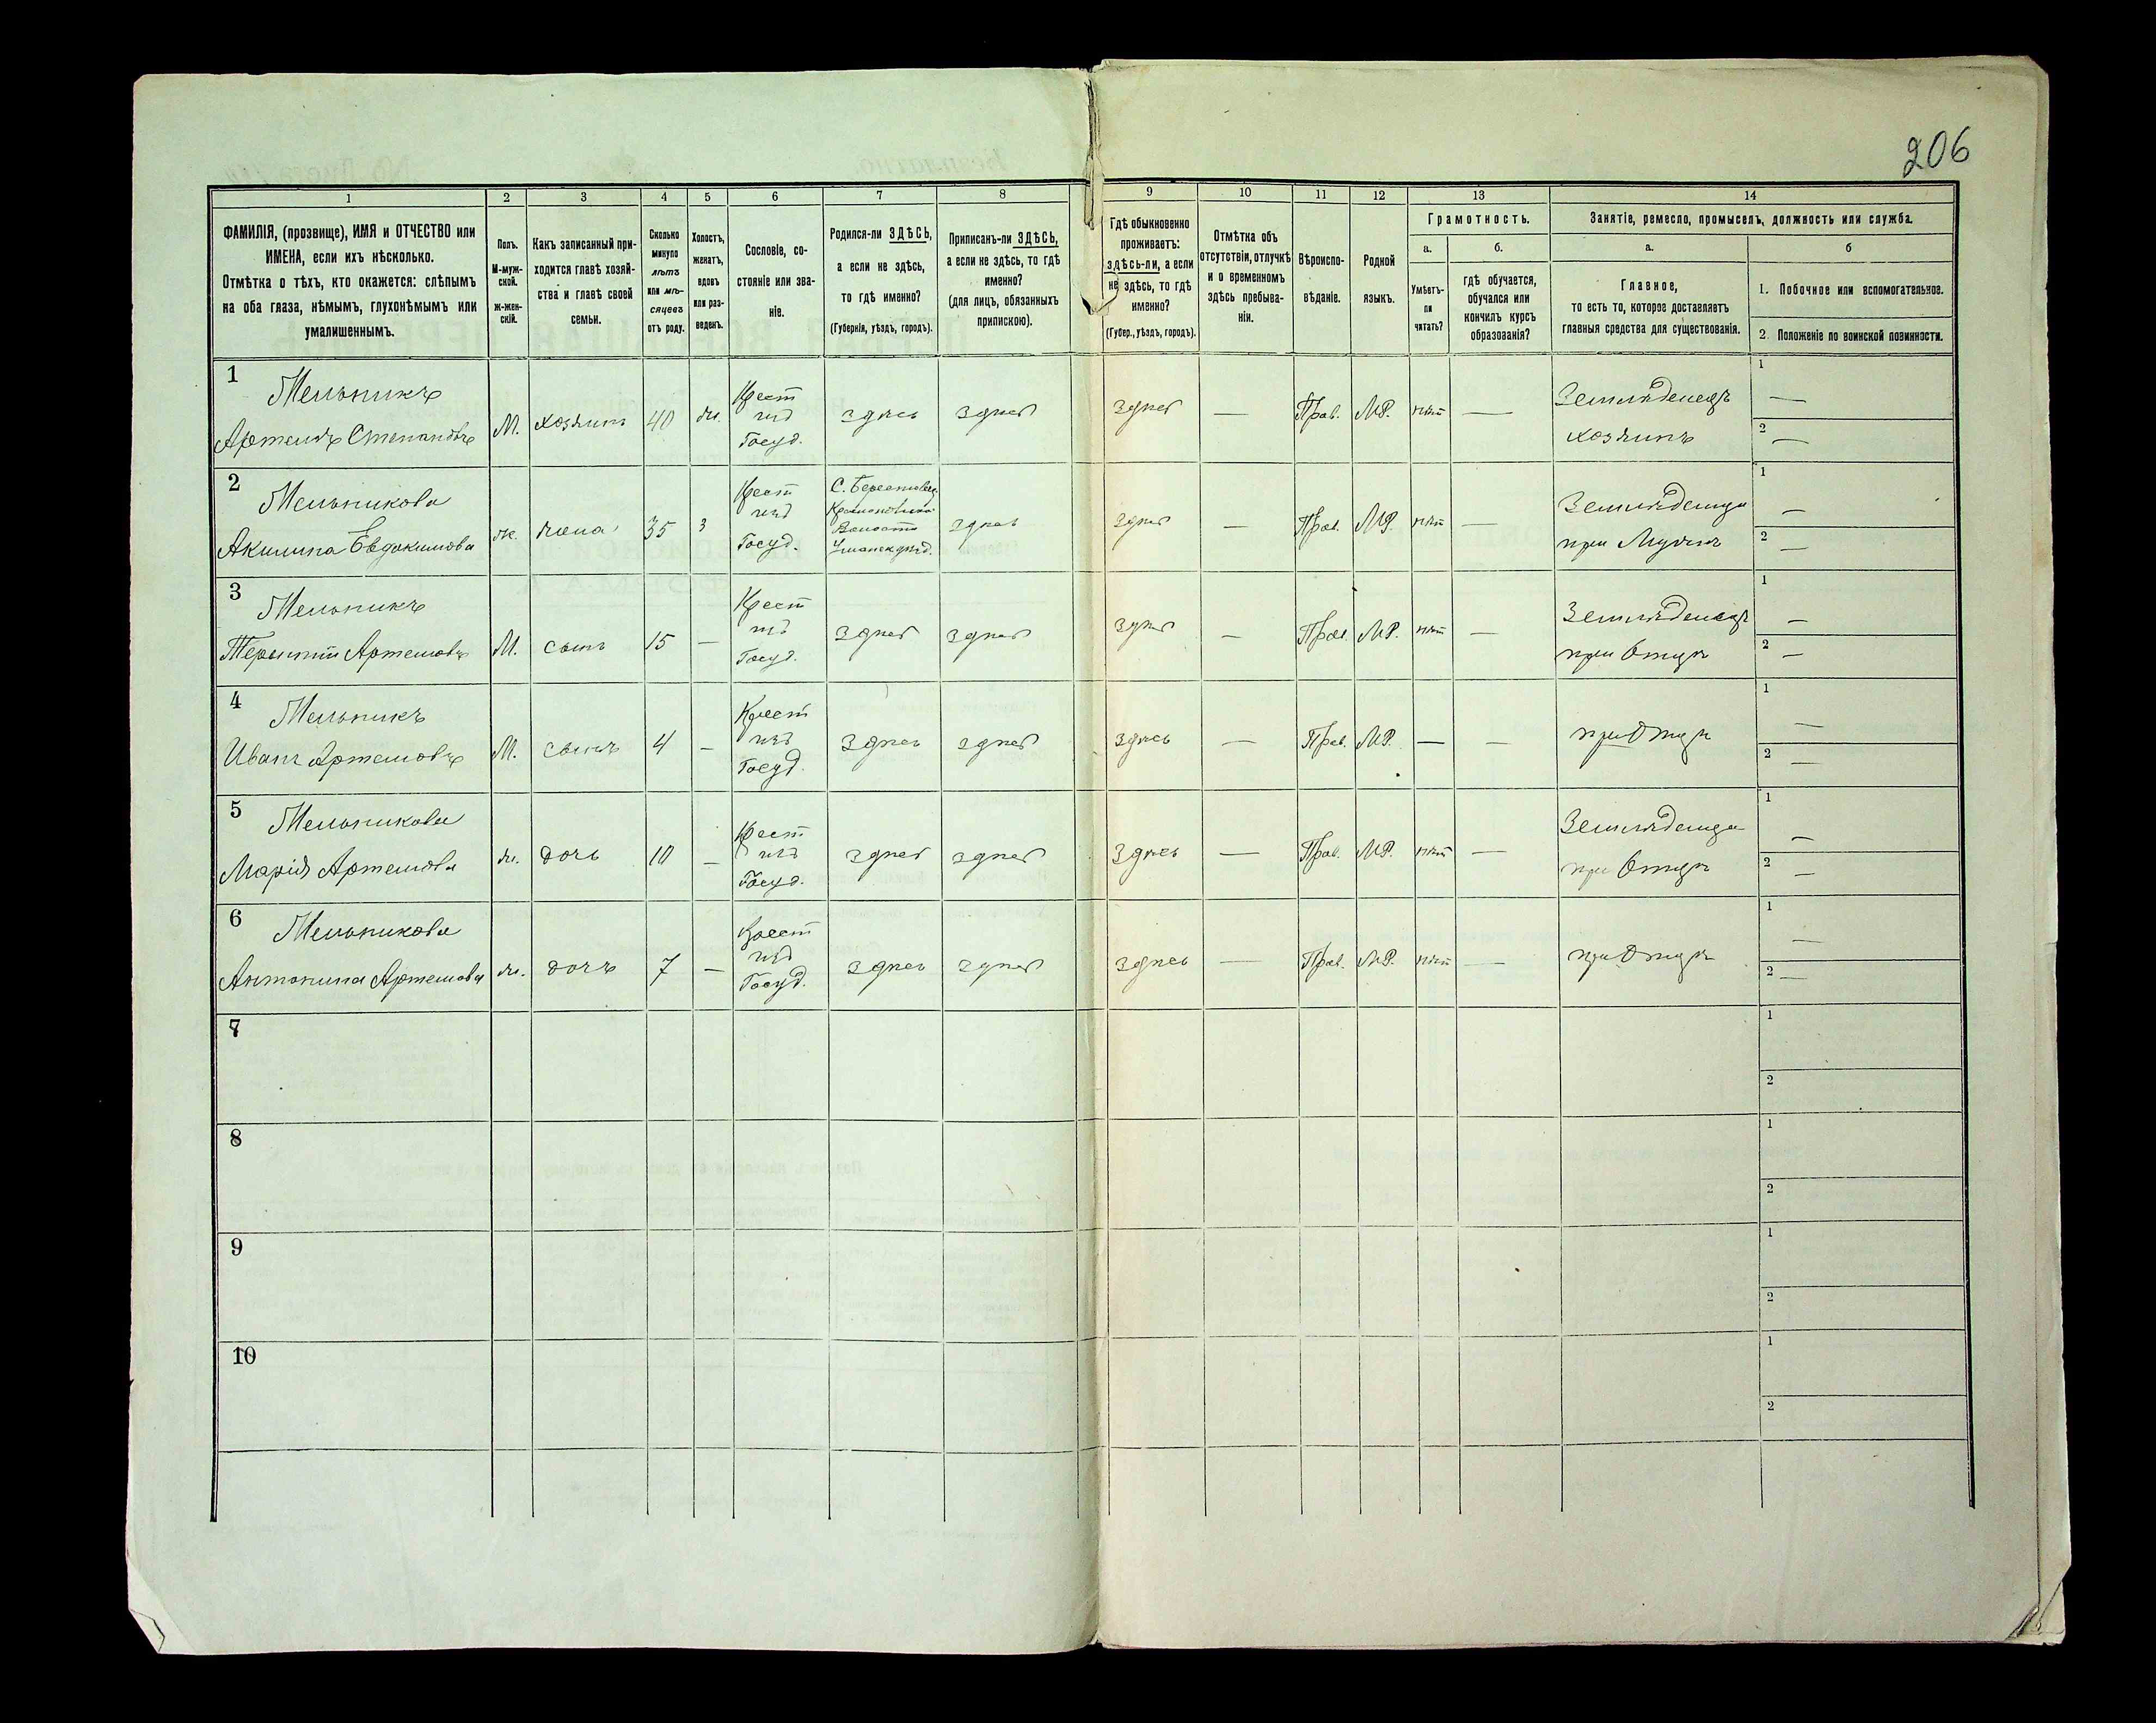 206
1 2 3 4 5 6 7 8 9 10 11 12 13 14
ФАМИЛІЯ, (прозвище), ИМЯ и ОТЧЕСТВО или
ИМЕНА, если ихъ нѣсколько.
Отмѣтка о тѣхъ, кто окажется: слѣпымъ
на оба глаза, нѣмымъ, глухонѣмымъ или
умалишеннымъ.
Полъ.
М-муж-
ской.
ж-жен-
скій.
Какъ записанный при-
ходится главѣ хозяй-
ства и главѣ своей
семьи.
Сколько
минуло
лѣтъ
или мѣ-
сяцевъ
отъ роду.
Холостъ,
женатъ,
вдовъ
или раз-
веденъ.
Сословіе, со-
стояніе или зва-
ніе.
Родился-ли ЗДѢСЬ,
а если не здѣсь,
то гдѣ именно?
(Губернія, уѣздъ, городъ).
Приписанъ-ли ЗДѢСЬ,
а если не здѣсь, то гдѣ
именно?
(для лицъ, обязанныхъ
припискою).
Гдѣ обыкновенно
проживаетъ:
здѣсь-ли, а если
не здѣсь, то гдѣ
именно?
(Губер., уѣздъ, городъ).
Отмѣтка объ
отсутствіи, отлучкѣ
и о временномъ
здѣсь пребыва-
ніи.
Вѣроиспо-
вѣданіе.
Родной
языкъ.
Грамотность.
а.
Умѣетъ-
ли
читать?
б.
гдѣ обучается,
обучался или
кончилъ курсъ
образованія?
Занятіе, ремесло, промыселъ, должность или служба.
а.
Главное,
то есть то, которое доставляетъ
главныя средства для существованія.
б
1. Побочное или вспомогательное.
2. Положеніе по воинской повинности.
1
Мельникъ
Артемъ Степановъ
М. хозяинъ 40 ж.
Крест
изъ
Госуд.
здѣсь здѣсь здѣсь — Прав. МР. нѣт —
Земледелецъ
хозяинъ
1 —
2 —
2
Мельникова
Акилина Евдокимова
ж. жена 35 з
Крест
изъ
Госуд.
С. Берестовец
Волости
Уманск уѣзд.
здѣсь здѣсь — Прав. МР. нѣт —
Земледелица
при Мужѣ
1 —
2 —
3
Мельникъ
Терентій Артемовъ
М. сынъ 15 —
Крест
изъ
Госуд.
здѣсь здѣсь здѣсь — Прав. МР. нѣт —
Земледелецъ
при Отцѣ
1 —
2 —
4
Мельникъ
Иванъ Артемовъ
М. сынъ 4 —
Крест
изъ
Госуд.
здѣсь здѣсь здѣсь — Прав. МР. — —
при Отцѣ
1 —
2 —
5
Мельникова
Марія Артемова
ж. дочь 10 —
Крест
изъ
Госуд.
здѣсь здѣсь здѣсь — Прав. МР. нѣт —
Земледелица
при Отцѣ
1 —
2 —
6
Мельникова
Антонина Артемова
ж. дочь 7 —
Крест
изъ
Госуд.
здѣсь здѣсь здѣсь — Прав. МР. нѣт —
при Отцѣ
1 —
2 —
7
1
2
8
1
2
9
1
2
10
1
2